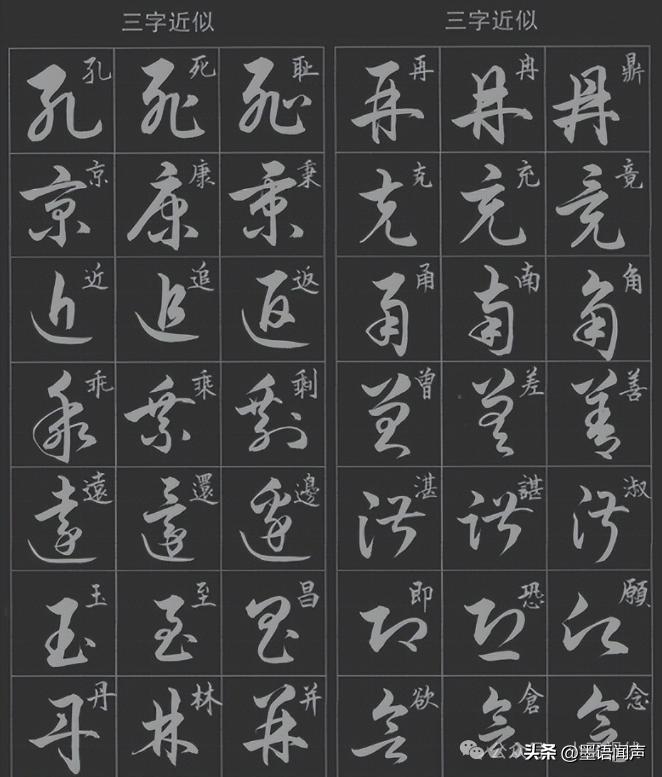 三字近似
孔 死 耻
京 康 秉
近 追 返
乖 乘 剩
遠 還 邊
玉 至 昌
丹 林 并
三字近似
再 冉 鼎
克 充 竟
甬 南 角
曾 差 善
湛 諶 淑
即 恐 願
欲 倉 念
头条 @墨语闻声